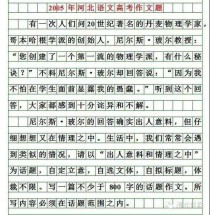 2005年河北语文高考作文题
有一次人们问20世纪著名的丹麦物理学家,
哥本哈根学派的创始人,尼尔斯·玻尔教授:
“您创建了一个第一流的物理学派,有什么秘
诀?”不料尼尔斯·玻尔却回答说:“因为我
不怕在学生面前显露我的愚蠢。”听到这个回
答,大家都感到十分诧异和不解。
尼尔斯·玻尔的回答确实出人意料,但仔
细想想又在情理之中。生活中,我们常常会遇
到类似的情况。请以“出人意料和情理之中”
为话题,自定立意,自选文体,自拟标题,体
裁不限。写一篇不少于 800 字的话题作文。所
写内容必须在话题范围之内。